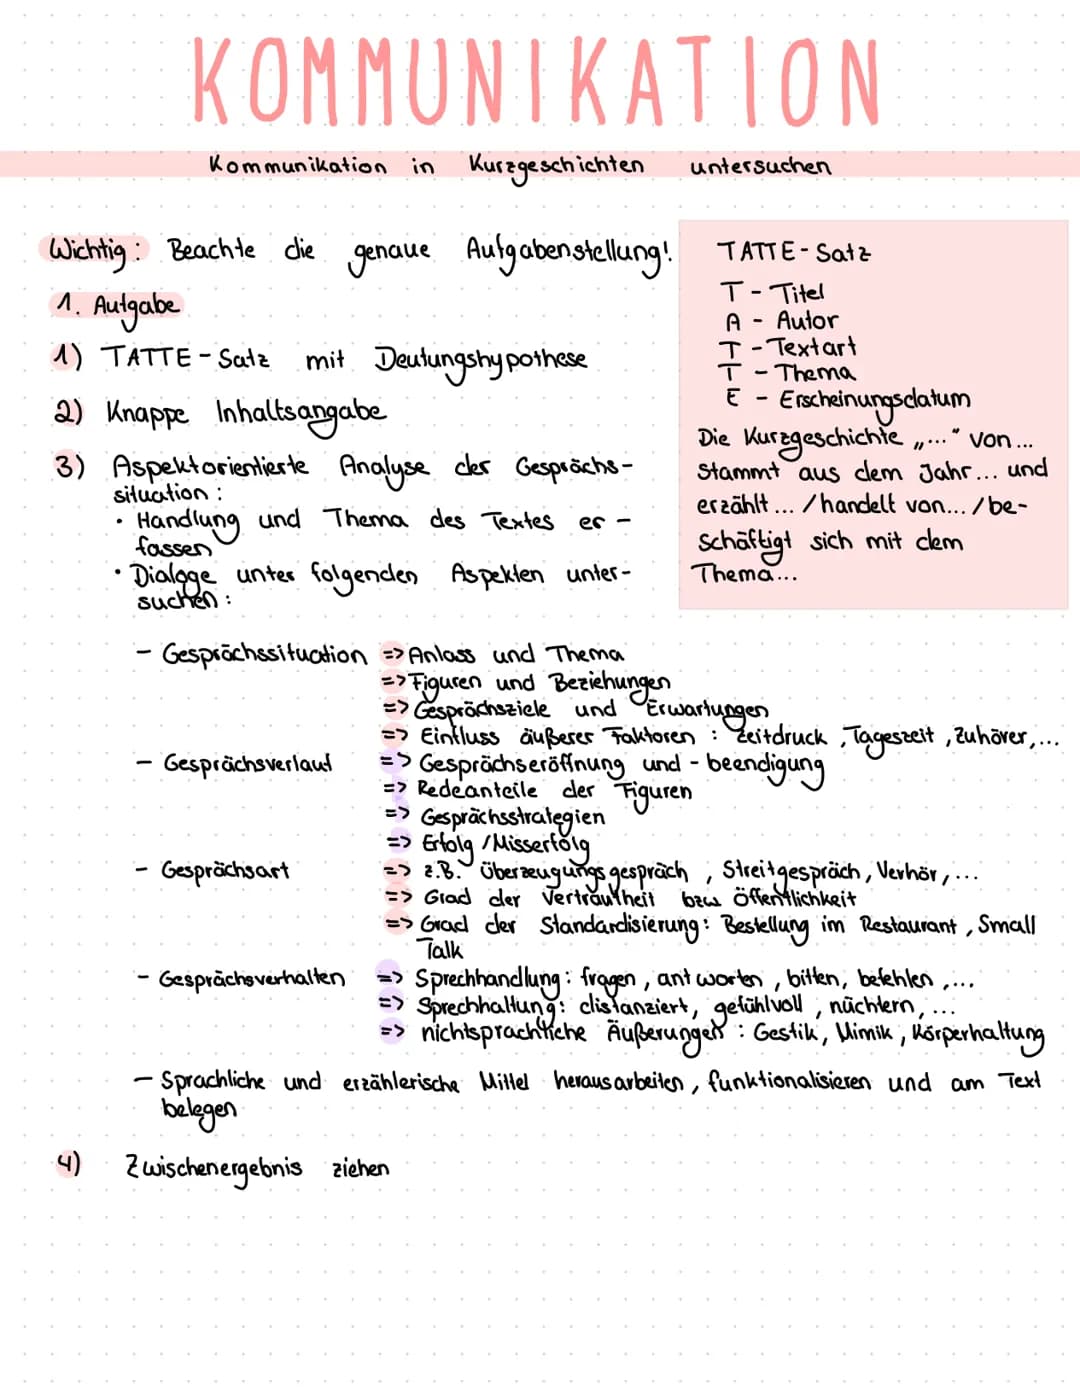 KOMMUNIKATION
Kommunikation in Kurzgeschichten untersuchen
Wichtig: Beachte die genaue Aufgabenstellung!
1. Aufgabe
1) TATTE-Satz mit Deutungshypothese
2) Knappe Inhaltsangabe
3) Aspektorientierte Analyse der Gesprächs-
situation:
• Handlung und Thema des Textes er-
fassen
• Dialoge unter folgenden Aspekten unter-
suchen:
TATTE-Satz
T - Titel
A - Autor
T - Textart
T - Thema
E - Erscheinungsdatum
Die Kurzgeschichte „..." von...
stammt aus dem Jahr... und
erzählt ... /handelt von... /be-
schäftigt sich mit dem
Thema...
- Gesprächssituation => Anlass und Thema
=> Figuren und Beziehungen
=> Gesprächsziele und Erwartungen
=> Einfluss äußerer Faktoren: Zeitdruck, Tageszeit, Zuhörer,...
- Gesprächsverlauf => Gesprächseröffnung und -beendigung
=> Redeanteile der Figuren
=> Gesprächsstrategien
=> Erfolg/Misserfolg
- Gesprächsart => z.B. Überzeugungsgespräch, Streitgespräch, Verhör,...
=> Grad der Vertrautheit bzw Öffentlichkeit
=> Grad der Standardisierung: Bestellung im Restaurant, Small
Talk
- Gesprächsverhalten => Sprechhandlung: fragen, antworten, bitten, befehlen,...
=> Sprechhaltung: distanziert, gefühlvoll, nüchtern, ...
=> nichtsprachliche Äußerungen: Gestik, Mimik, Körperhaltung
- Sprachliche und erzählerische Mittel herausarbeiten, funktionalisieren und am Text
belegen
4) Zwischenergebnis ziehen